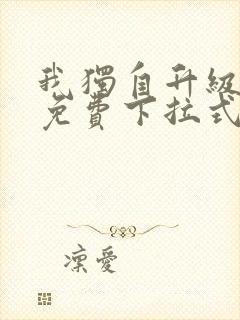 我獨自升級
免費下拉式
凜愛